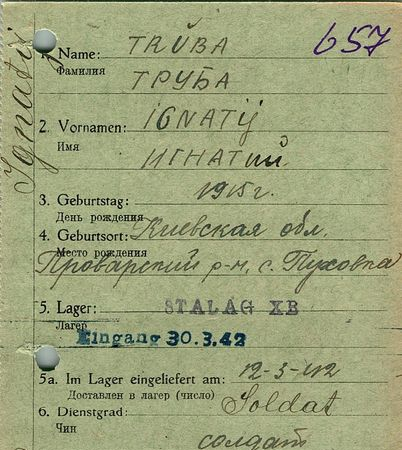 657
Ignatij
1. Name: TRUBA
Фамилия ТРУБА
2. Vornamen: IGNATIJ
Имя ИГНАТИЙ
3. Geburtstag: 1915 г.
День рождения
4. Geburtsort: Киевская обл.
Место рождения
Броварский р-н, с. Пуховка
5. Lager: STALAG XB
Лагерь
Eingang 30.3.42
5a. Im Lager eingeliefert am: 12-3-42
Доставлен в лагерь (число)
6. Dienstgrad: Soldat
Чин солдат